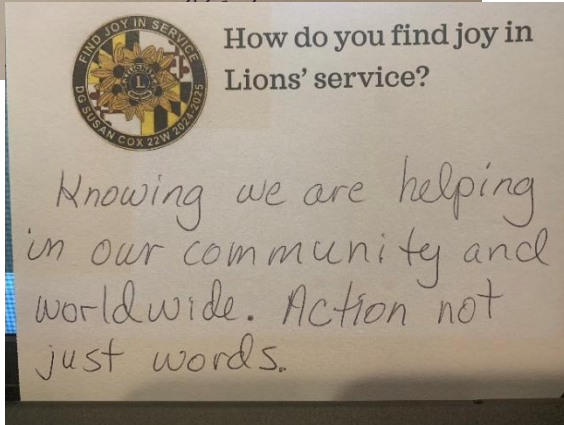 FIND JOY IN SERVICE
DG SUSAN COX 22W 2024-2025
L
How do you find joy in
Lions' service?
Knowing we are helping
in our community and
worldwide. Action not
just words.